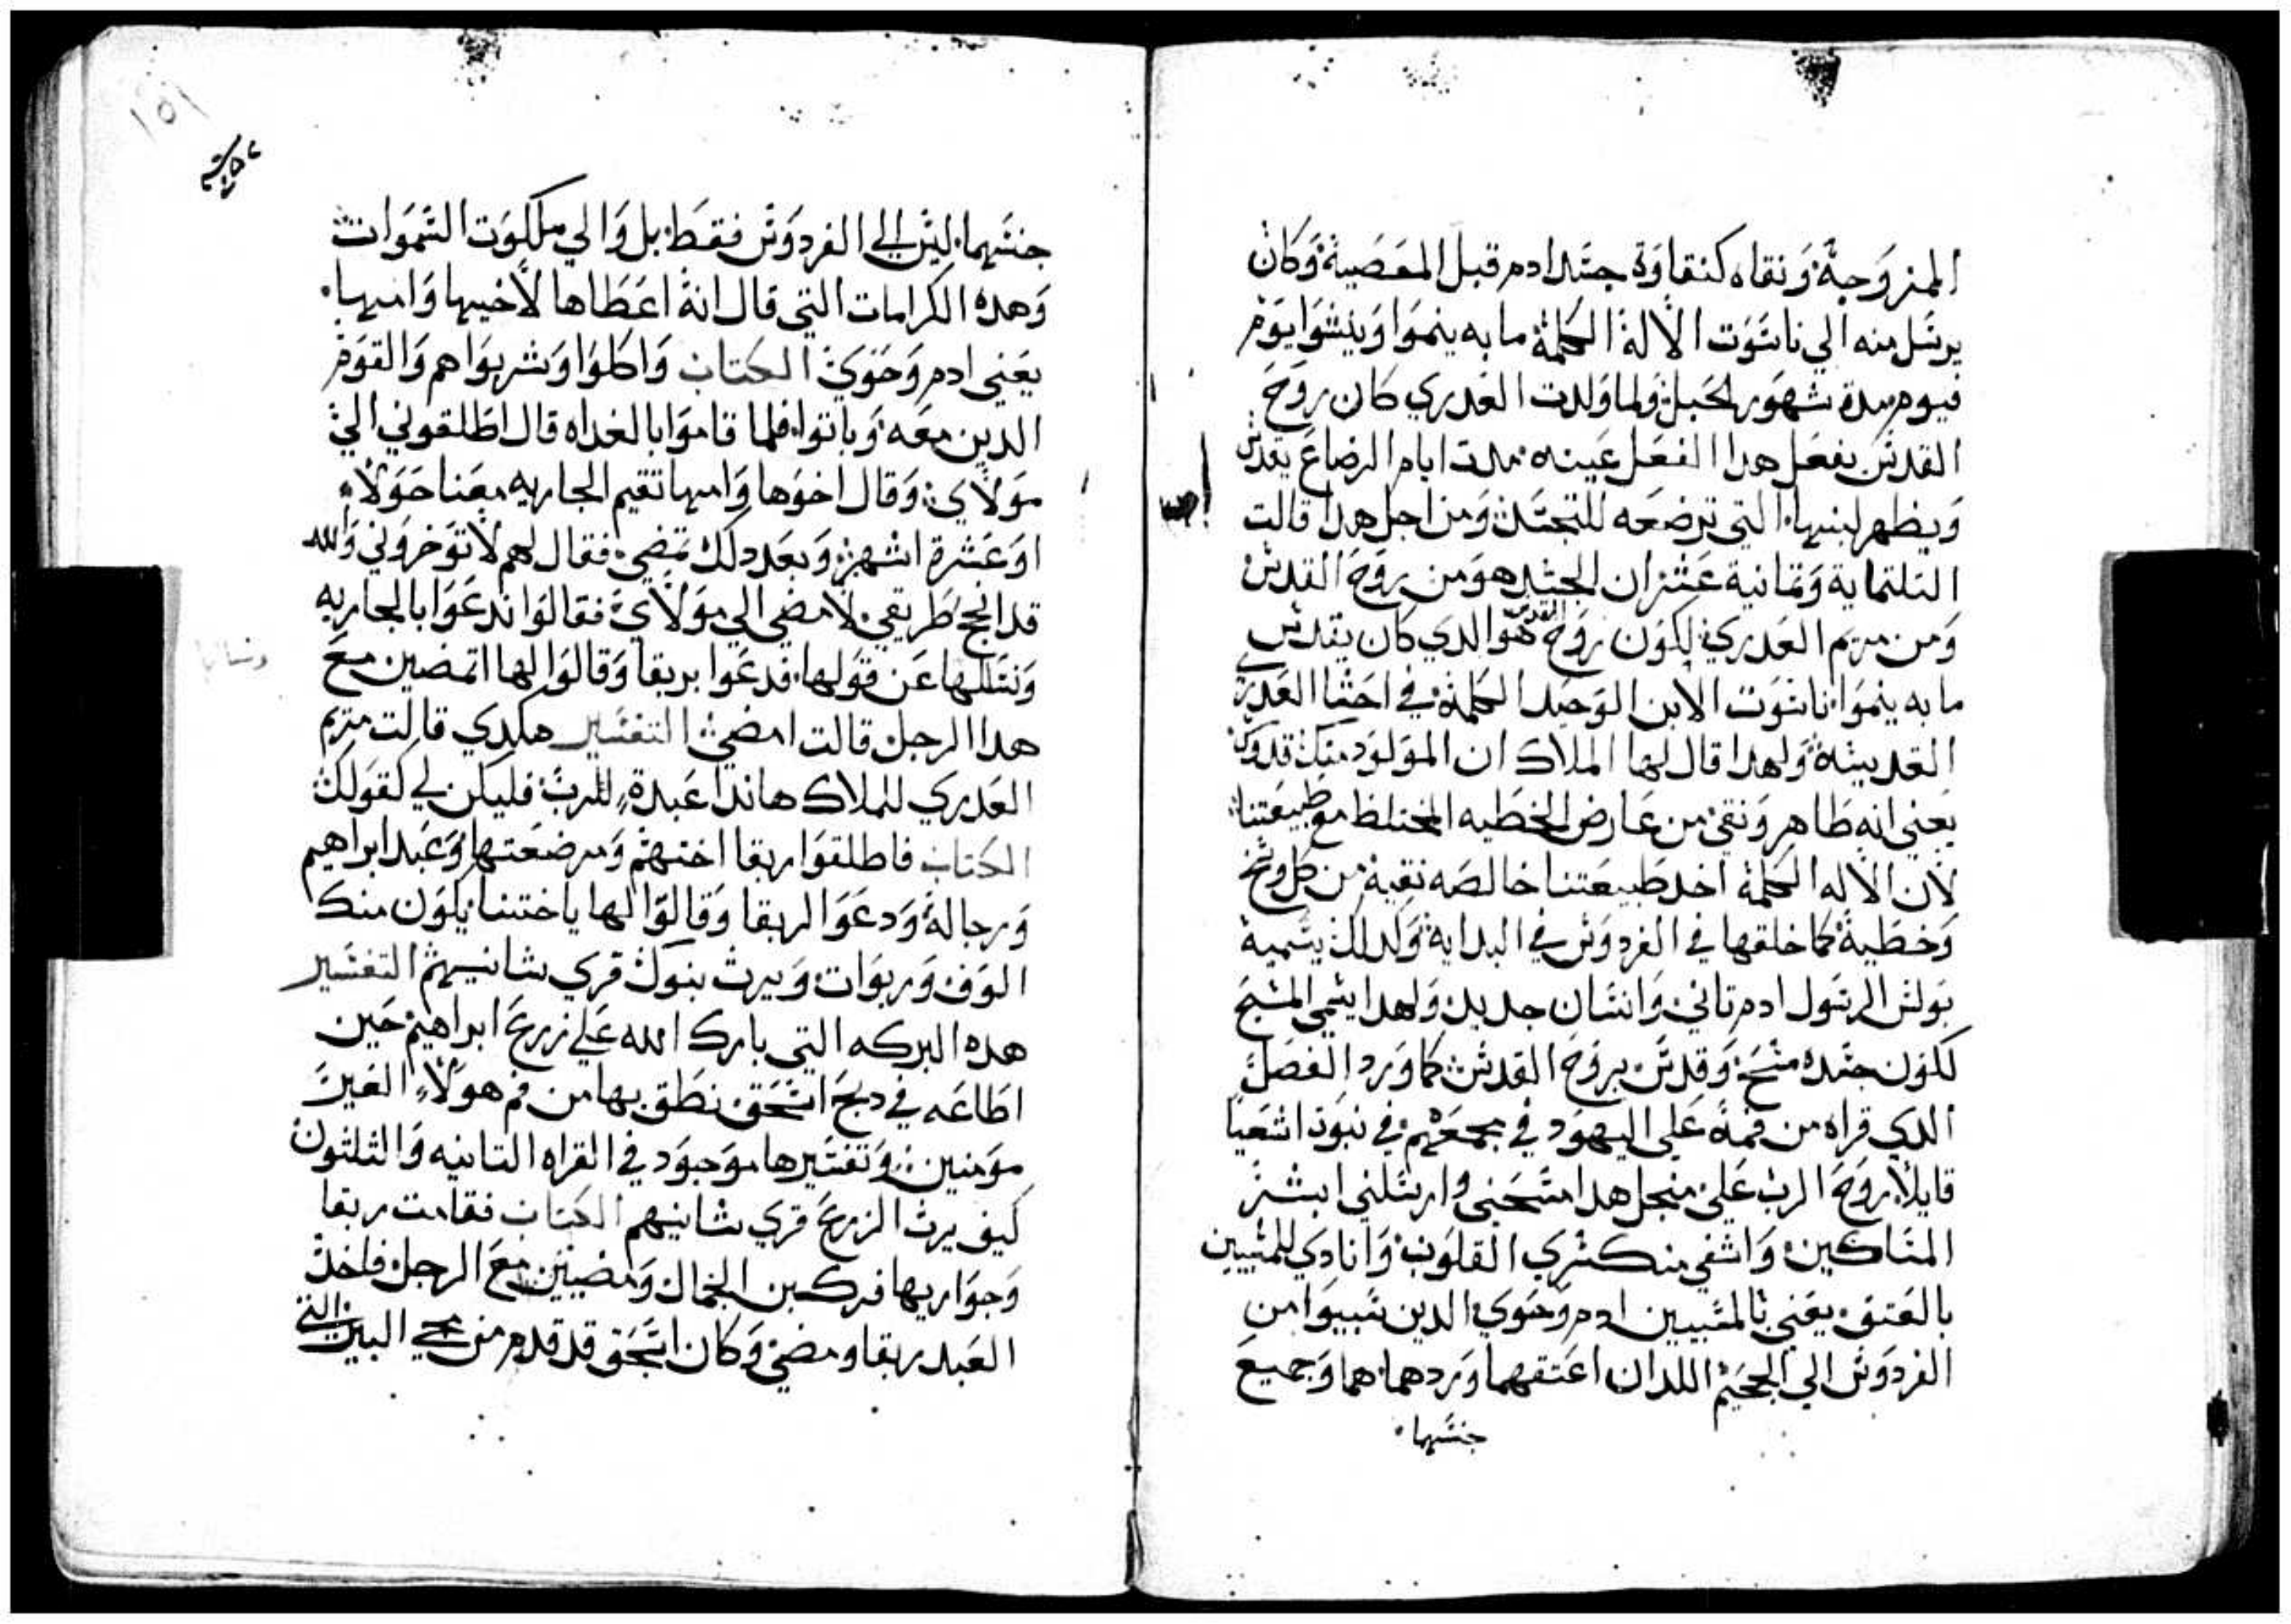 الممزوجة ونقاه كنقاوة جسد ادم قبل المعصية وكان
يرسل منه الي ناسوت الاله الكلمة ما به ينموا وينشوا يوم
فيوم مدة شهور الحبل ولما ولدت العدري كان روح
القدس يفعل هدا الفعل عينه مدت ايام الرضاع يقدس
ويطهر لبنها التي ترضعه للتجسد ومن اجل هدا قالت
التلتماية وتمانية عشر ان الجسد هو من روح القدس
ومن مريم العدري لكون روح القدس هو الدي كان يقدس
ما به ينموا ناسوت الابن الوحيد الكلمة في احشا العدري
القديسة ولهدا قال لها الملاك ان المولود منك قدوس
يعني انه طاهر ونقي من عارض الخطيه المختلط مع طبيعتنا
لان الاله الكلمة اخد طبيعتنا خالصه نقية من كل وسخ
وخطية كما خلقها في الفردوس في البداية وكدلك يسمية
بولس الرسول ادم تاني وانسان جديد ولهدا يسمي المسيح
لكون جسده مسح وقدس بروح القدس كما ورد الفصل
الدي قراه من فمه علي اليهود في مجمعهم في نبوة اشعيا
قايلا روح الرب علي منجل هدا مسحني وارسلني ابشر
المساكين واشفي منكسري القلوب وانادي للمسبيين
بالعتق يعني بالمسبيين ادم وحوي الدين سبيوا من
الفردوس الي الجحيم اللدان اعتقهما وردهما هما وجميع
جنسهما
جنسهما ليس الي الفردوس فقط بل والي ملكوت السموات
وهده الكرامات التي قال انه اعطاها لاخيها وامها
يعني ادم وحوي الكتاب واكلوا وشربوا هم والقوم
الدين معه وباتوا فلما قاموا بالغداه قال اطلقوني الي
مولاي وقال اخوها وامها تقيم الجاريه معنا حولاء
او عشرة اشهر وبعد دلك تمضي فقال لهم لا توخروني والله
قد انجح طريقي لامضي الي مولاي فقالوا ندعوا بالجاريه
ونسلها عن قولها فدعوا بربقا وقالوا لها اتمضين مع
هدا الرجل قالت امضي التفسير هكدي قالت مريم
العدري للملاك هاندا عبدة للرب فليكن لي كقولك
الكتاب فاطلقوا ربقا اختهم ومرضعتها وعبد ابراهيم
ورجاله ودعوا لربقا وقالوا لها يا ختنا يكون منك
الوف وربوات ويرث بنوك قري شانيهم التفسير
هده البركه التي بارك الله علي زرع ابراهيم حين
اطاعه في دبح اسحق نطق بها من فم هولاء الغير
مومنين وتفسيرها موجود في القراه التانيه والثلثون
كيف يرث الزرع قري شانيهم الكتاب فقامت ربقا
وجواريها فركبين الجمال ومضيين مع الرجل فاخد
العبد ربقا ومضي وكان اسحق قد قدم من مجي البير التي